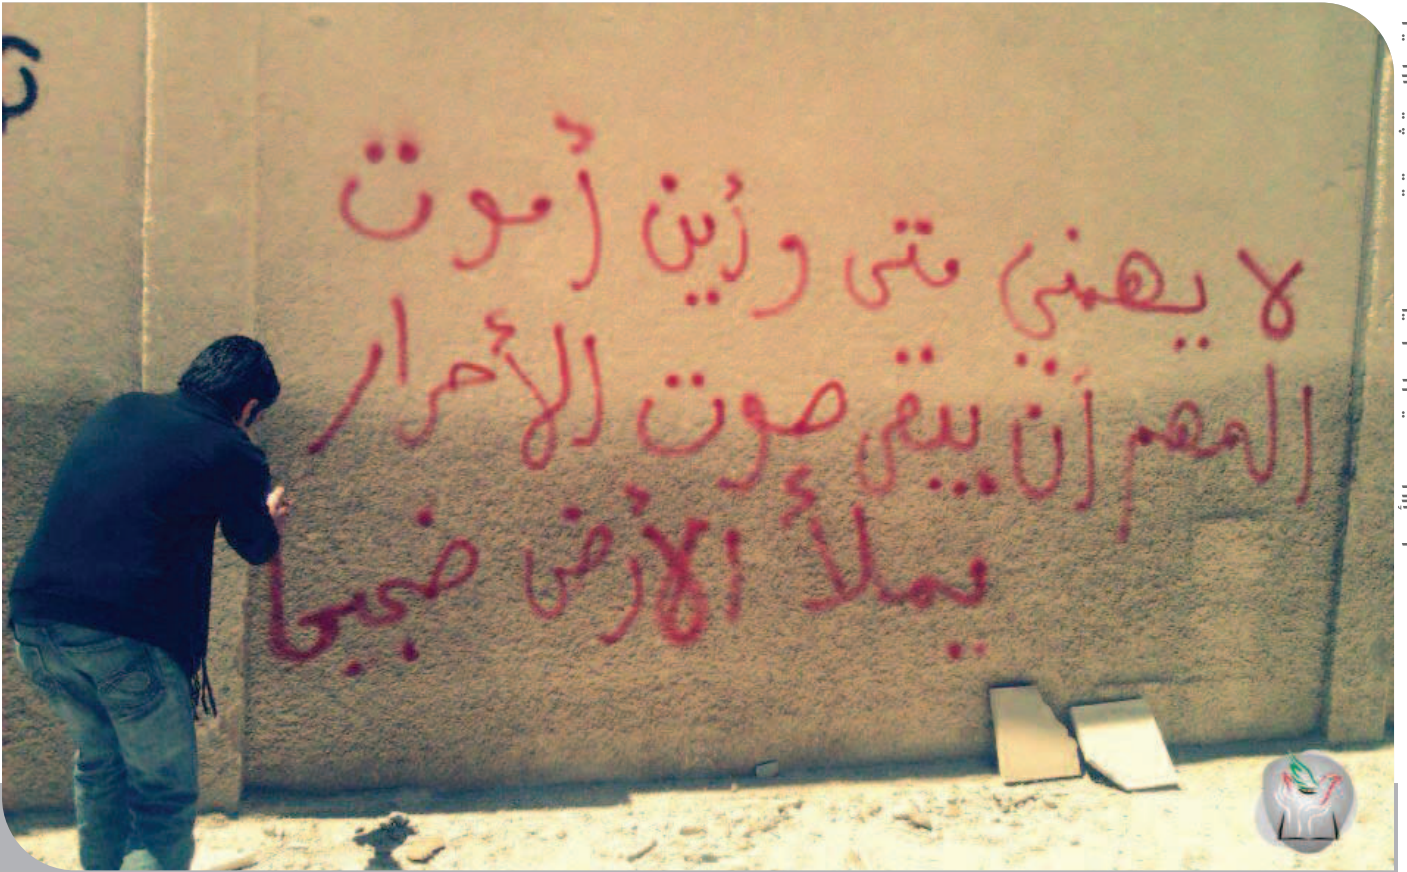 لا يهمني متى وأين أموت
المهم أن يبقى صوت الأحرار
يملأ الأرض ضجيجا